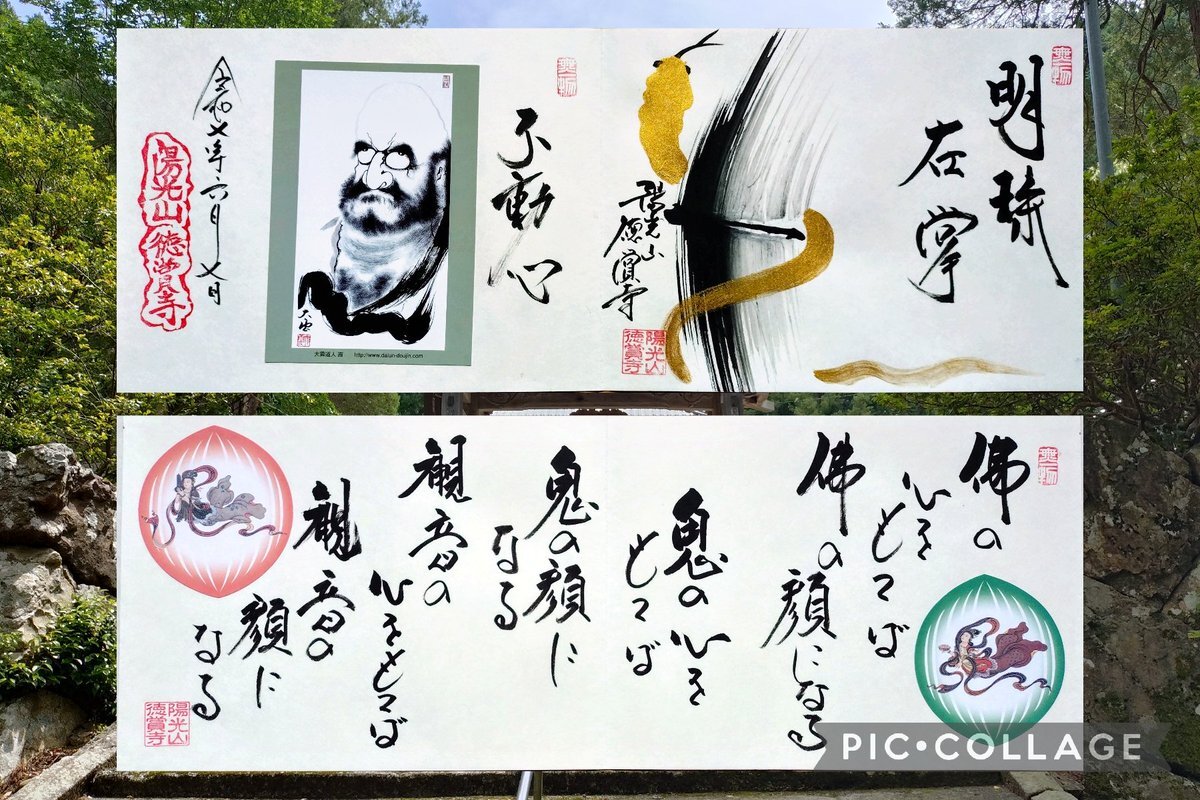 明珠
在掌
陽光山
徳賞寺
陽光山
徳賞寺
不動心
大雲道人 画 http://www.daiun-doujin.com
令和七年六月七日
陽光山徳賞寺
佛の
心をもてば
佛の
顔になる
鬼の心を
もてば
鬼の顔に
なる
観音の
心をもてば
観音の
顔に
なる
陽光山
徳賞寺
PIC•COLLAGE